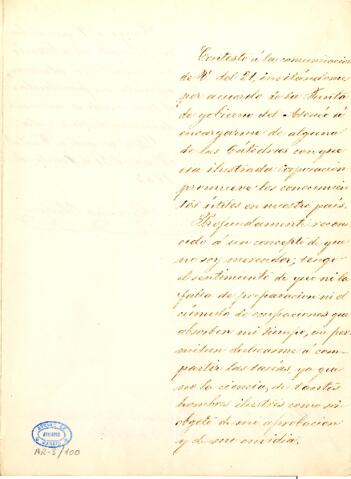 Contesto á la comunicacion
de V. del 21, invitándome
por acuerdo de la Junta
de gobierno del Ateneo á
encargarme de alguna
de las Cátedras con que
esa ilustrada Corporación
promueve los conocimien
tos útiles en nuestro país.
Profundamente recono
cido á un concepto de que
no soy merecedor, tengo
el sentimiento de que ni la
falta de preparacion ni el
cúmulo de ocupaciones que
absorben mi tiempo, me per
miten dedicarme á com
partir las tareas, ya que
no la ciencia, de tantos
hombres ilustres como son
objeto de mi aprobacion
y de mi envidia.
ATENEO
MADRID
AR-3/100